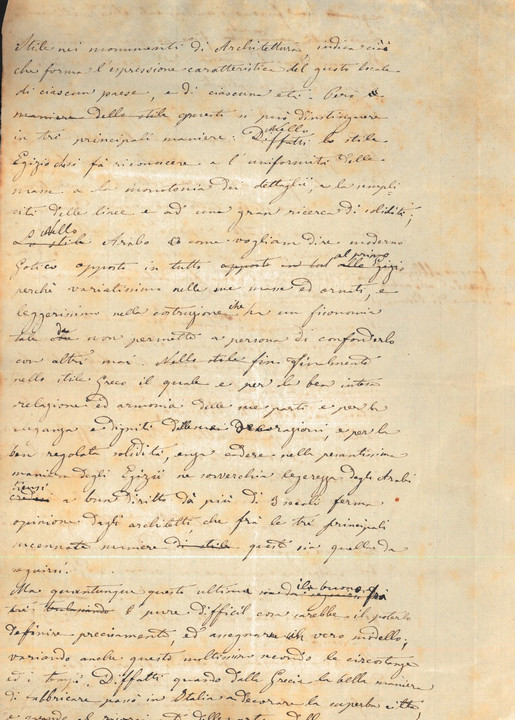 Stile nei monumenti di Architettura indica ciò
che forma l'espressione caratteristica del gusto locale
di ciascun paese, e di ciascuna età. Però
maniera dello stile questi si può distinguere
in trè principali maniere: Diffatti lo stile
nello
Egizio che si fà riconoscere a l'uniformità delle
masse a la monotonia dei dettaglii, a la sempli
cità delle linee e ad una gran ricerca di solidità;
Lo stile Arabo o come vogliam dire moderno
Nello
Gotico opposto in tutto opposto in tutto allo Egizio
al primo
perchè variatissimo nelle sue masse ed ornati, e
leggerissimo nella costruzione ha una fisonomia
che
tale che non permette a persona di confonderlo
da
con altri mai. Nello stile fin Finalmente
nello stile Greco il quale e per la ben intesa
relazione ed armonia delle sue parti e per la
euganza e dignità delle sue decorazioni, e per la
ben regolata solidità, senza cadere nella pesantissima
maniera degli Egizii ne soverchia legerezza degli Arabi
tiensi
credesi a buon diritto dà più di 3 secoli ferma
opinione dagli architetti che frà le trè principali
accennate maniere di stile questa sia quella da
seguirsi.
Ma quantunque questo ultimo sia da seguirsi frà
il buono
essi è pure difficil cosa sarebbe il poterlo
definire precisamente ed assegnare un vero modello;
variando anche questo moltissimo secondo le circostanze
ed i tempi. Diffatti quando dalla Grecia la bella maniera
di fabbricare passò in Italia a decorare la superba città,